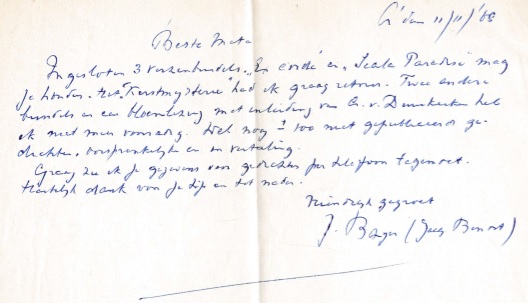 A'dam 11/11/'86
Beste Meta
Ingesloten 3 verzenbundels. "En corde" en "Scala Paradisi" mag
je houden. Het "Kerstmysterie" had ik graag retour. Twee andere
bundels en een bloemlezing met inleiding van A. v. Duinkerken heb
ik niet meer voorradig. Wel nog ± 100 niet gepubliceerde ge-
dichten, oorspronkelijke en in vertaling.
Graag zie ik je gegevens voor gedichten per telefoon tegemoet.
Hartelijk dank voor je tip en tot nader.
Vriendelijk gegroet
J. (Jacq Benoit)